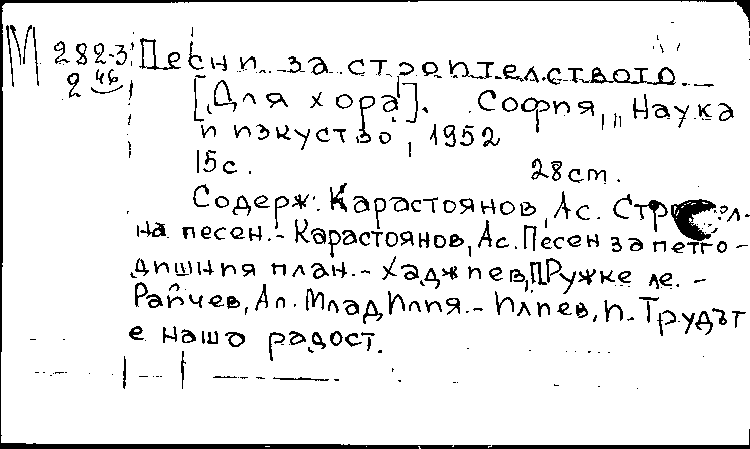 М 282-3 Песни за строителството
2 46 [Для хора]. София, "Наука
и изкуство, 1952
15с. 28cm.
Содерж: Карастоянов, Ас.
на песен.- Карастоянов, Ас. Песен за петго-
дишния план.- Хаджиев, П. Ружке ле. -
Райчев, Ал. Млад Илия.- Илиев, И. Трудът
е наша радост.